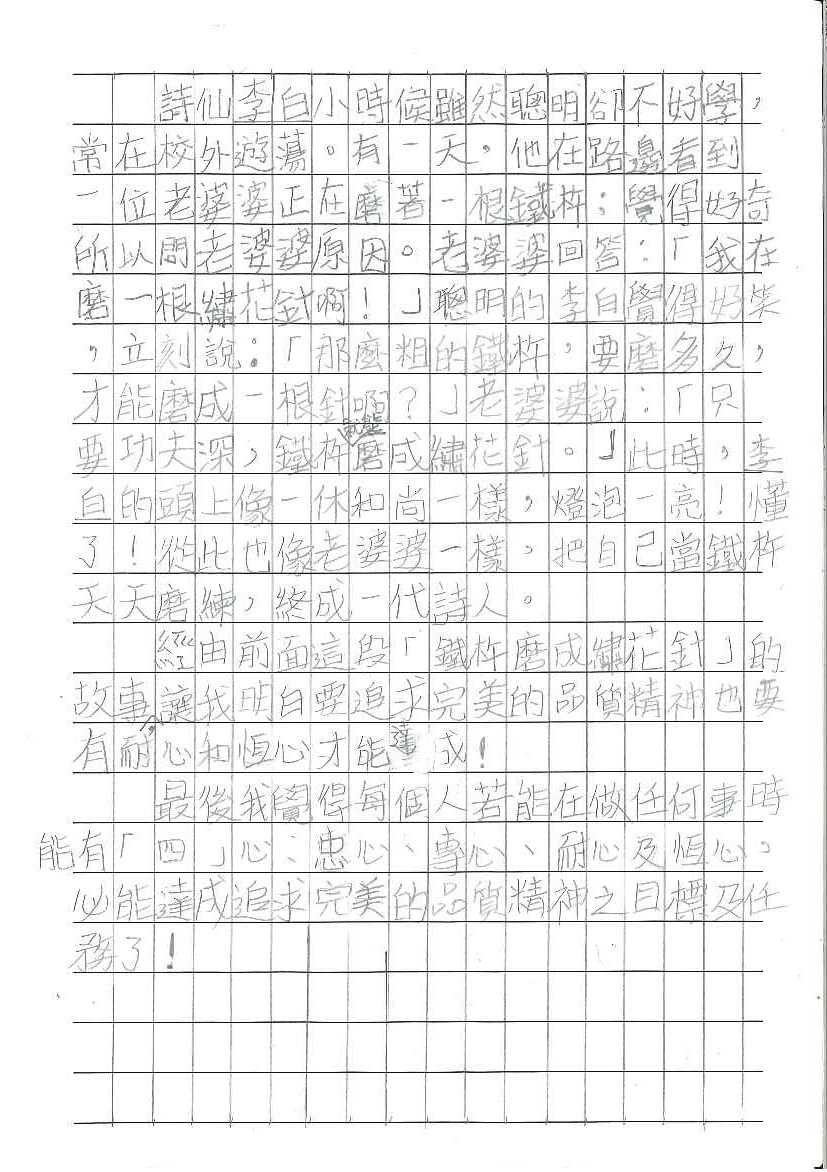 詩仙李白小時候雖然聰明卻不好學，
常在校外遊蕩。有一天，他在路邊看到
一位老婆婆正在磨著一根鐵杵；覺得好奇
所以問老婆婆原因。老婆婆回答：「我在
磨一根繡花針啊！」聰明的李白覺得好笑
，立刻說：「那麼粗的鐵杵，要磨多久，
才能磨成一根針啊？」老婆婆說：「只
要功夫深，鐵杵就能磨成繡花針。」此時，李
白的頭上像一休和尚一樣，燈泡一亮！懂
了！從此也像老婆婆一樣，把自己當鐵杵
天天磨練，終成一代詩人。
經由前面這段「鐵杵磨成繡花針」的
故事，讓我明白要追求完美的品質精神也要
有耐心和恆心才能達成！
最後我覺得每個人若能在做任何事時
能有「四」心：忠心、專心、耐心及恆心，
必能達成追求完美的品質精神之目標及任
務了！